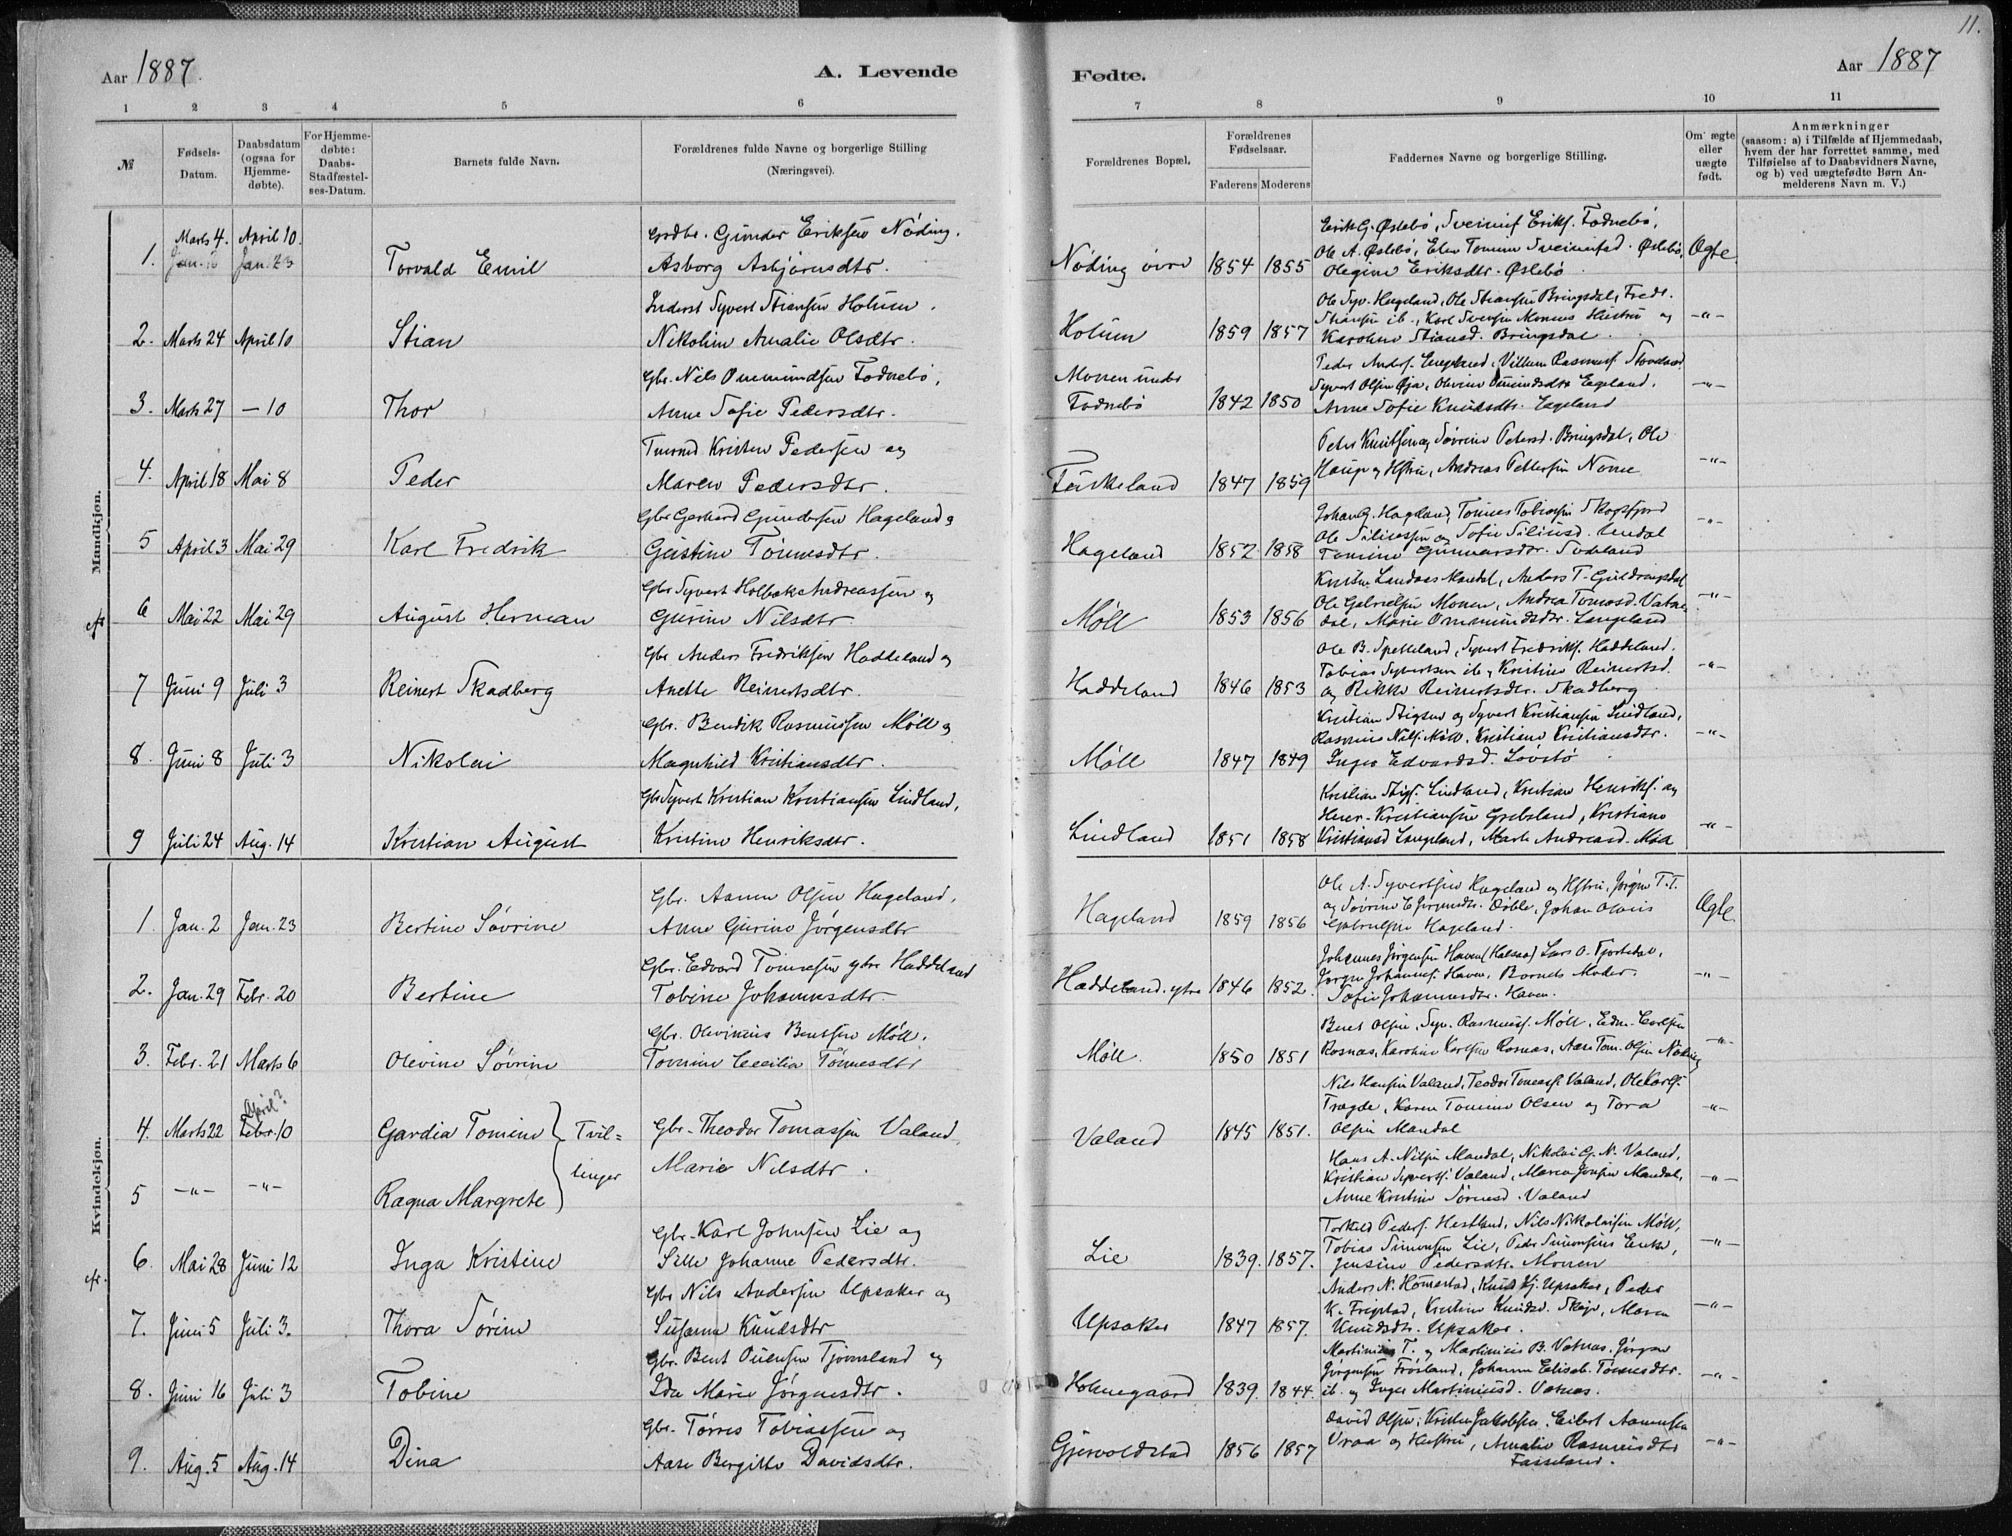 11.
Aar 1887.
A. Levende
Fødte.
Aar 1887
1 2 3 4 5 6 7 8 9 10 11
№
Fødsels-
Datum.
Daabsdatum
(ogsaa for
Hjemme-
døbte).
For Hjemme-
døbte:
Daabs-
Stadfæstel-
ses-Datum.
Barnets fulde Navn.
Forældrenes fulde Navne og borgerlige Stilling
(Næringsvei).
Forældrenes Bopæl.
Forældrenes
Fødselsaar.
Faderens Moderens
Faddernes Navne og borgerlige Stilling.
Om ægte
eller
uægte
født.
Anmærkninger
(saasom: a) i Tilfælde af Hjemmedaab,
hvem der har forrettet samme, med
Tilføielse af to Daabsvidners Navne,
og b) ved uægtefødte Børn An-
melderens Navn m. V.)
Mandkjøn.
1. Marts 4. April 10.
Jan. Jan. 23
Torvald Emil
Gunder Eriksen Nøding.
Asborg Asbjørnsdtr.
Nøding øvre 1854 1855
Erik G. Øslebø, Eriks. Fodnebø,
Ole A. Øslebø, Øslebø,
Olegine Eriksdtr. Øslebø
Ægte
2. Marts 24 April 10 Stian
Inderst Syvert Stiansen Holum.
Nikoline Amalie Olsdtr.
Holum 1859 1857
Ole Syv. Hageland, Ole Stiansen Bringsdal, Fredr.
Stiansen ib., Karl Svensen Monens Hustru og
Karoline Stiansd. Bringsdal.
-"-
3. Marts 27 - 10 Thor
Gbr. Nils Fodnebø,
Anne Sofie Pedersdtr.
Monen under
Fodnebø 1842 1850
Peder Anders. Engeland, Villum Rasmuss.
Syvert Olsen Øja, Olevine Egeland,
Anne Sofie Knudsdtr. Egeland
-"-
4. April 18 Mai 8 Peder
Kristen Pedersen og
Maren Pedersdtr.
1847 1859
Peter Knutsen og Søvrine Petersd. Bringsdal, Ole
Haugs og Hstru, Andreas Pettersen Nome
-"-
5 April 3 Mai 29 Karl Fredrik
Gbr. Gerhard Gundersen Hageland og
Gustine Tønnesdtr.
Hageland 1852 1858
Johan G. Hageland, Tønnes Tobiassen Skogsfjord
Ole og Sofie
Tomine Gunnarsdtr.
-"-
6 Mai 22 Mai 29 August Herman
Gbr. Syvert Holbæk Andreassen og
Gurine Nilsdtr
Møll 1853 1856
Mandal, Anders T.
Ole Gabrielsen Monen, Andrea Tomasd. Vatne-
dal, Marie Langeland
-"-
7 Juni 9 Juli 3 Reinert Skadberg
Gbr. Anders Fredriksen Haddeland og
Anette Reinertsdtr.
Haddeland 1846 1853
Ole B. Spetteland, Syvert Fredriks. Haddeland.
Tobias Syvertsen ib., Kristine Reinertsd.
og Rikke Reinertsdtr. Skadberg
-"-
8. Juni 8 Juli 3 Nikolai
Gbr. Bendik Rasmussen Møll og
Magnhild Kristiansdtr.
Møll 1847 1849
Kristian Stigsen og Syvert Kristiansen Lindland,
Rasmus Nils. Møll, Kristiane Kristiansdtr.
Inger Edvardsd. Løvstø
-"-
9 Juli 24 Aug. 14 Kristian August
Gbr. Syvert Kristian Kristiansen Lindland,
Kristine Henriksdtr.
Lindland 1851 1858
Kristian Stigs. Lindland, Kristian Henriks. og
Kristiansen Grebsland, Kristiane
Kristiansd Langeland, Marte Andreasd.
-"-
Kvindekjøn.
1. Jan. 2 Jan. 23 Bertine Søvrine
Gbr. Aanen Olsen Hageland.
Anne Gurine Jørgensdtr
Hageland 1859 1856
Ole A. Syvertsen Hageland og Hstru, Jørgen T. T.
og Søvrine Døble, Johan
Gabrielsen Hageland.
Ægte
2. Jan. 29 Febr. 20 Bertine
Gbr. Edvard Tønnesen ytre Haddeland
Tobine Johannesdtr.
Haddeland. ytre 1846 1852.
Johannes Jørgensen Haven (Halsaa) Lars O.
Jørgen Johannes. Haven, Barnets Moder.
Sofie Johannesdtr. Haven.
-"-
3. Febr. 21 Marts 6 Olevine Søvrine
Gbr. Olevinius Bentsen Møll.
Tomine Cecilia Tønnesdtr
Møll. 1850 1851
Bent Olsen, Syv. Rasmuss. Møll, Edv. Carlsen
Rosnæs, Karoline Karlsen Rosnæs, Aase Tom. Olsen Nøding
-"-
April?
4. Marts 22 Febr. 10 Gardia Tomine Tvil=
Gbr. Theodor Tomassen Valand.
Marie Nilsdtr.
Valand 1845 1851.
Nils Hansen Valand, Teodor Tomass. Valand, Ole Karls.
Trægde, Karen Tomine Olsen og Tora
Olsen Mandal
-"-
5 -"- -"- Ragna Margrete linger
Hans A. Nilsen Mandal, Nikolai G. N. Valand,
Kristian Syverts. Valand, Maren Jensen Mandal,
Anne Kristine Valand
-"-
6. Mai 28 Juni 12 Inga Kristine
Gbr. Karl Johnsen Lie og
Sille Johanne Pedersdtr.
Lie 1839. 1857.
Torkild Peders. Hestland, Nils Nikolaisen Møll,
Tobias Simonsen Lie, Peder Simonsens Enke,
Jensine Pedersdtr. Monen
-"-
7. Juni 5 Juli 3. Thora Sørine
Gbr. Nils Andersen Upsaker og
Susanne Knudsdtr
Upsaker 1847 1857.
Anders N. Homestad, Knud Hj. Upsaker, Peder
K. Frigstad, Kristine Knudsd. Skeje, Maren
Knudsdtr. Upsaker.
-"-
8. Juni 16 Juli 3 Tobine
Gbr. Bent Tjomsland og
Ida Marie Jørgnesdtr.
Holmegaard 1839. 1844.
Martinius T. og Martinius B. Vatnas. Jørgen
Jørgensen Frøisland, Johanne Eliseb. Tønnesdtr.
ib. og Inger Martiniusd. Vatnas.
-"-
9. Aug. 5 Aug. 14 Dina
Gbr. Tørres Tobiassen og
Aase Bergitte Davidsdtr.
Gjervoldstad 1856 1857
David Olsen, Kristen Jakobsen, Eilert Aanensen
Vraa og Hustru, Amalie Rasmusdtr
Fasseland.
-"-